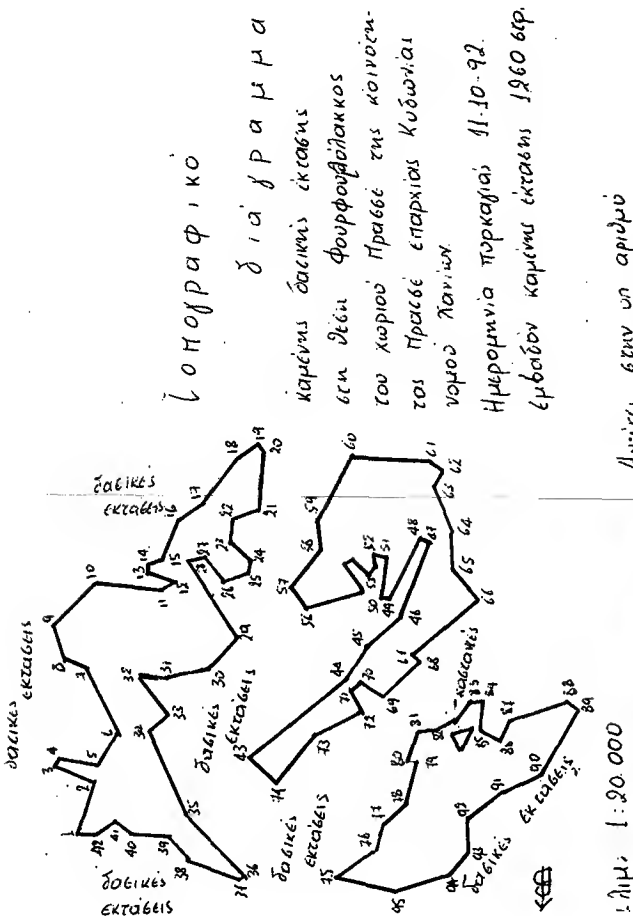 Τοπογραφικό
διάγραμμα
καμένης δασικής έκτασης
στη θέση Φουρφουρόλακκος
του χωριού Πρασσέ της κοινότη-
τος Πρασσέ επαρχίας Κυδωνίας
νομού Χανίων.
Ημερομηνία πυρκαγιάς 11-10-92.
εμβαδόν καμένης έκτασης 1260 στρ.
στην υπ αριθμό
1:20.000
δασικές εκτάσεις
δασικές
εκτάσεις
δασικές
εκτάσεις
δασικές
εκτάσεις
δασικές
εκτάσεις
δασικές
εκτάσεις
καστανιές
1
2
3
4
5
6
7
8
9
10
11
12
13
14
15
16
17
18
19
20
21
22
23
24
25
26
27
28
29
30
31
32
33
34
35
36
37
38
39
40
41
42
43
44
45
46
47
48
49
50
51
52
53
56
57
58
59
60
61
62
63
64
65
66
67
68
69
70
71
72
73
74
75
76
77
78
79
80
81
82
83
84
85
86
87
88
89
90
91
92
93
94
95